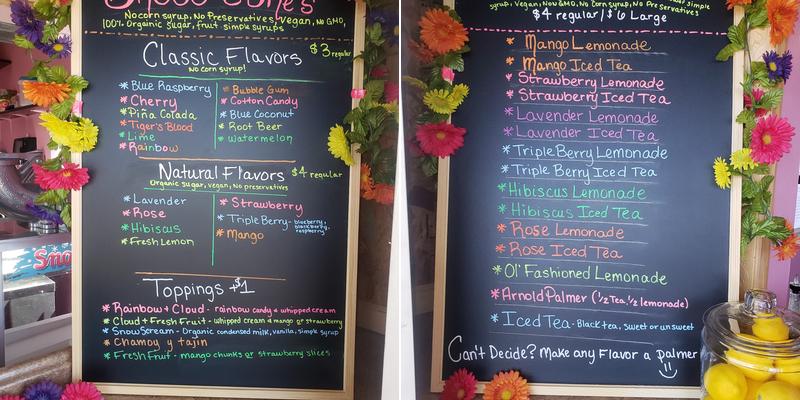 Snow Cones
No corn syrup, No Preservatives, Vegan, No GMO,
100% Organic sugar, fruit simple syrups
Classic Flavors $3 regular
No corn syrup!
* Blue Raspberry
* Cherry
* Piña Colada
* Tiger's Blood
* Lime
* Rainbow
* Bubble Gum
* Cotton Candy
* Blue Coconut
* Root Beer
* Watermelon
Natural Flavors $4 regular
Organic sugar, vegan, No preservatives
* Lavender
* Rose
* Hibiscus
* Fresh Lemon
* Strawberry
* Triple Berry - blueberry, blackberry, raspberry
* Mango
Toppings +$1
* Rainbow + Cloud - rainbow candy & whipped cream
* Cloud + Fresh Fruit - whipped cream & mango or strawberry
* Snow Scream - Organic condensed milk, vanilla, simple syrup
* Chamoy y tajin
* Fresh Fruit - mango chunks or strawberry slices
Sno
syrup, Vegan, Non GMO, No corn syrup, No Preservatives
$4 regular / $6 Large
* Mango Lemonade
* Mango Iced Tea
* Strawberry Lemonade
* Strawberry Iced Tea
* Lavender Lemonade
* Lavender Iced Tea
* Triple Berry Lemonade
* Triple Berry Iced Tea
* Hibiscus Lemonade
* Hibiscus Iced Tea
* Rose Lemonade
* Rose Iced Tea
* Ol' Fashioned Lemonade
* Arnold Palmer (1/2 Tea, 1/2 lemonade)
* Iced Tea - Black tea, sweet or unsweet
Can't Decide? Make any Flavor a palmer